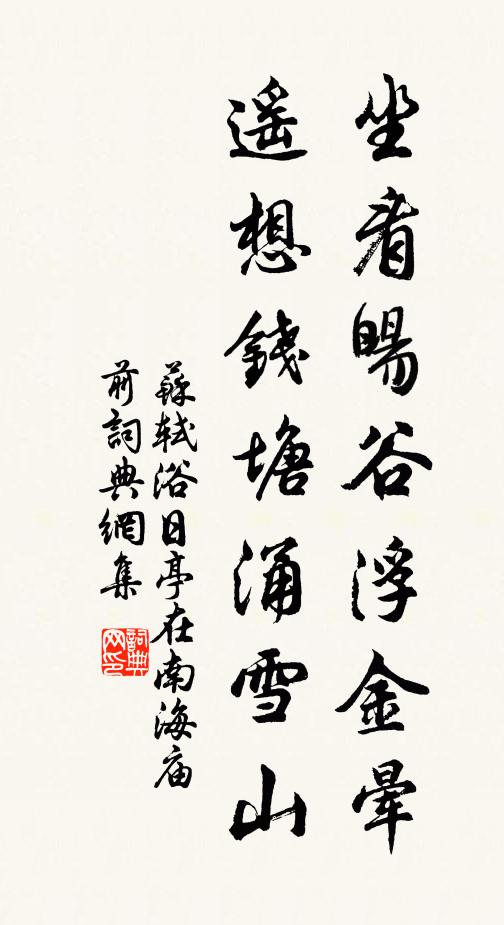 坐看暘谷浮金暈
遥想錢塘涌雪山
蘇軾浴日亭在南海庙
前詞典網集
詞典
网印